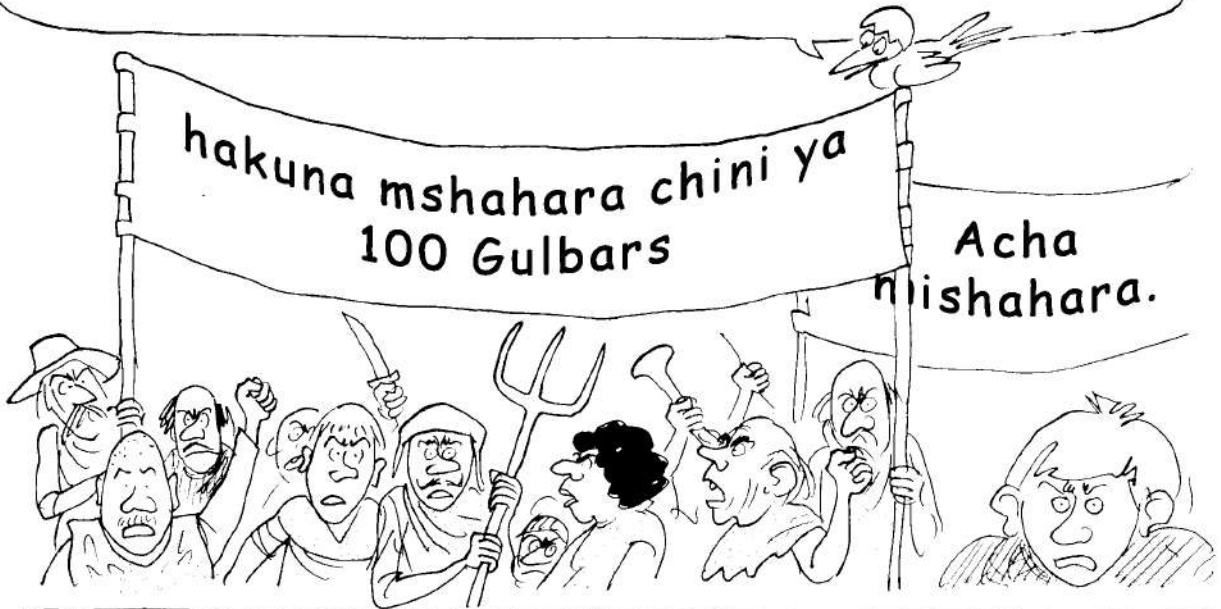 hakuna mshahara chini ya
100 Gulbars
Acha
mishahara.